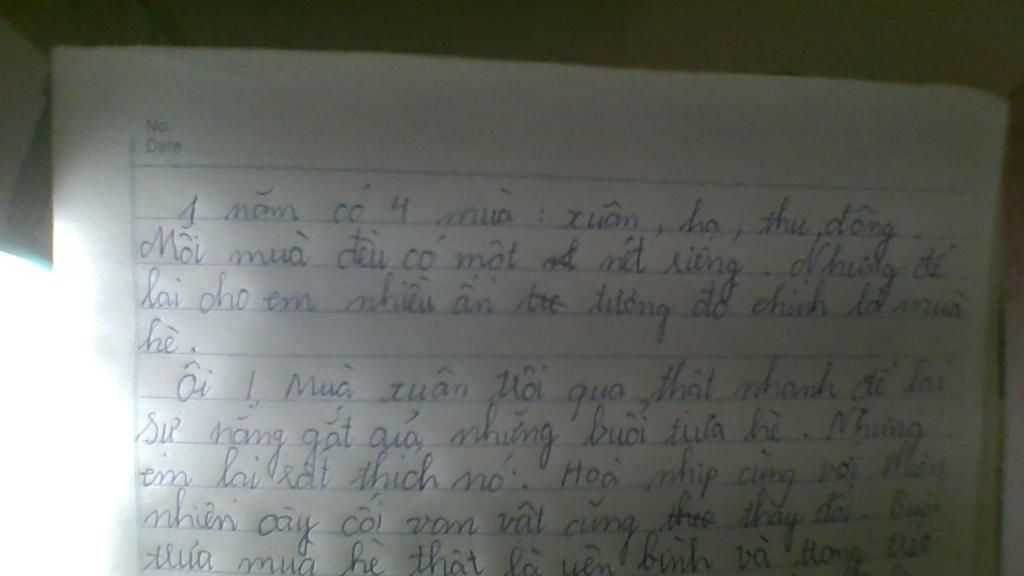 No.
Date
1 năm có 4 mùa : xuân, hạ, thu, đông.
Mỗi muà đều có một nét riêng. Nhưng để
lại cho em nhiều ấn tượng đó chính là muà
hè.
Ôi ! Muà xuân trôi qua thật nhanh để lại
sự nắng gắt quả những buổi trưa hè. Nhưng
em lại rất thích nó. Hoà nhịp cùng với thiên
nhiên cây cối vạn vật cũng thay đổi. Buổi
trưa muà hè thật là yên bình và trong